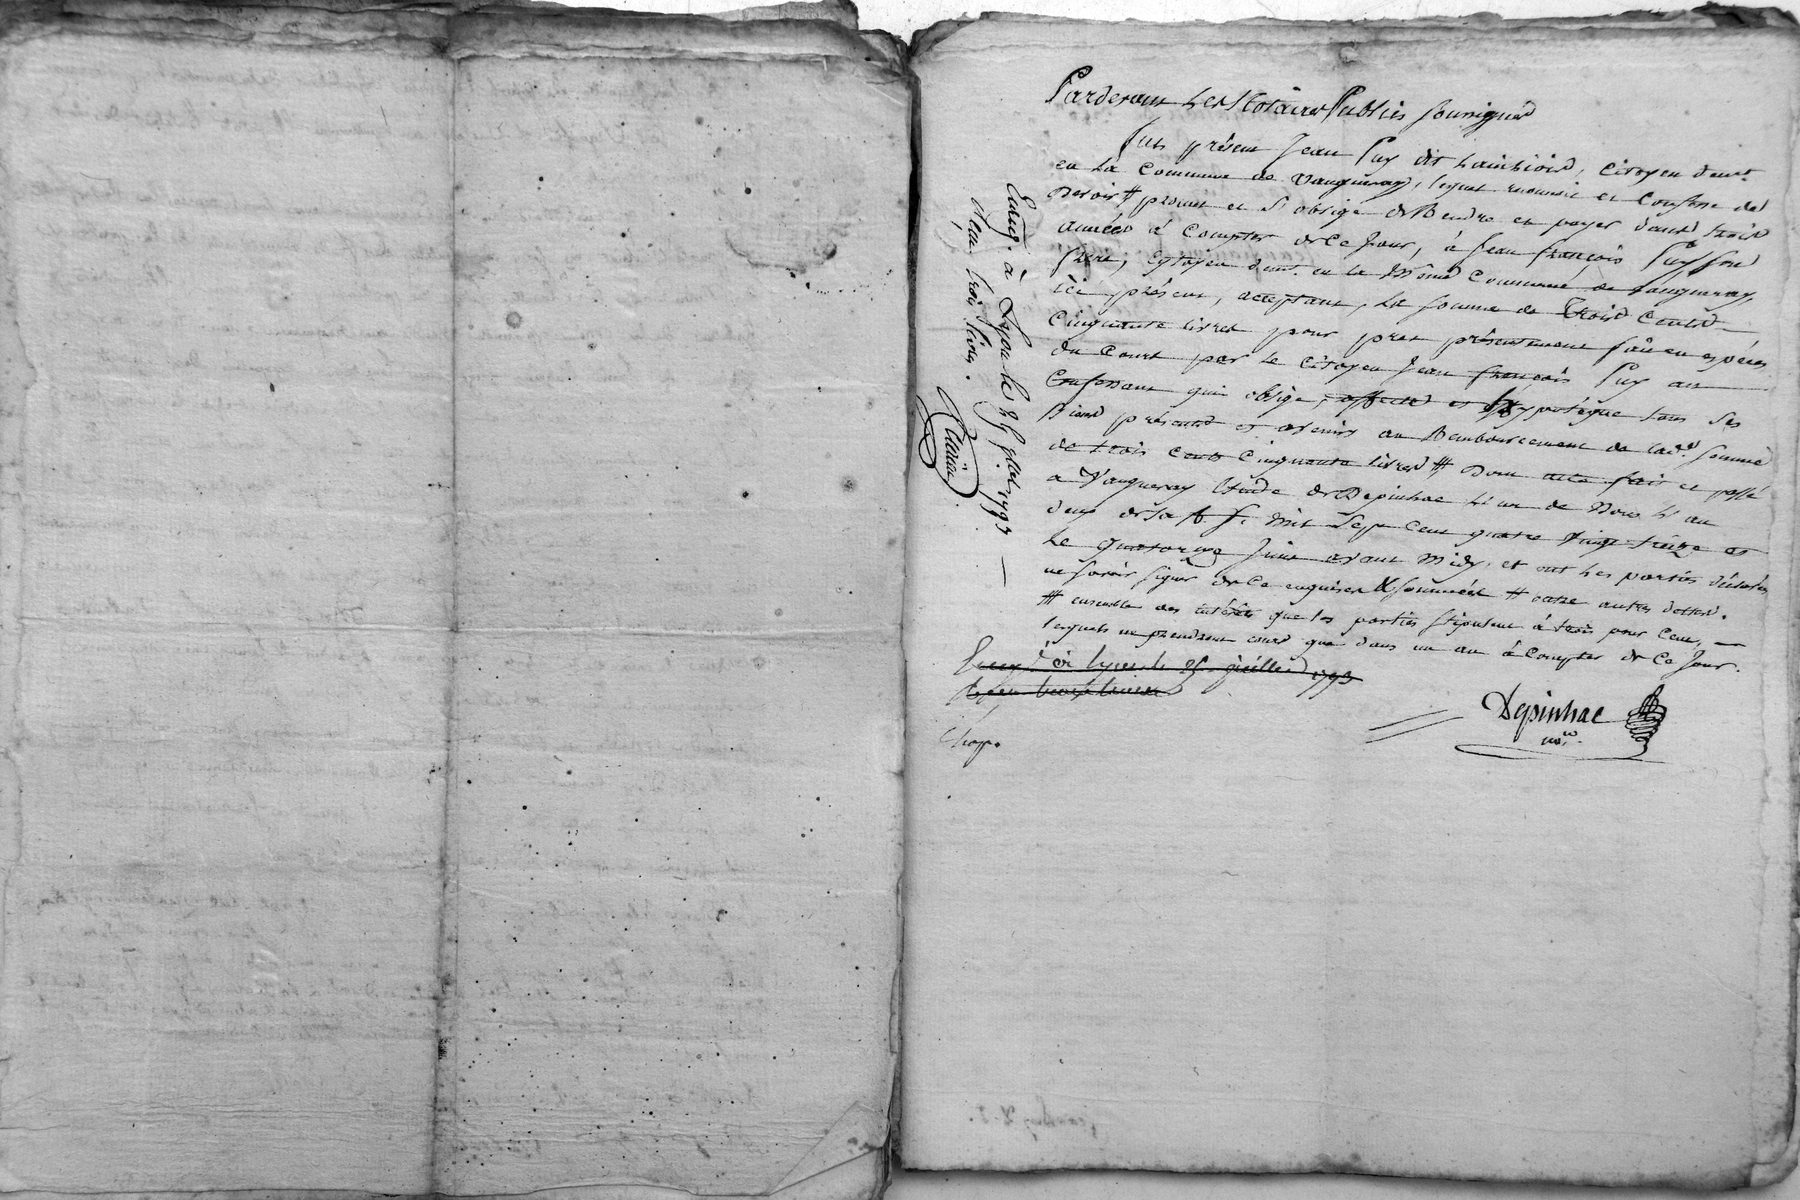 Pardevant Les Notaires Publics soussignés
fut présent Jean Puy dit Lainsioin, Citoyen demt.
en La Commune de Vaugneray, lequel reconnoit et Confesse de
Devoir # promet et s'oblige de Rendre et payer dans trois
années à Compter de Ce Jour, à Jean françois Puy son
frere, Citoyen demt. en la même Commune de Vaugneray
ici présent, acceptant, La somme de Trois Cents
Cinquante livres pour pret présentement fait en espéces
du Court par le Citoyen Jean françois Puy au
Confessant qui oblige, affecte et hypotéque tous ses
Biens présents et avenirs au Remboursement de lade. somme
de trois Cents Cinquante livres # Dont acte fait et passé
a Vaugneray Etude de Depinhac L'un de Nous L'an
deux de la R. f. mil sept cent quatre vingt treize et
Le quatorze Juin avant midy, et ont Les parties déclarés
ne savoir signer de Ce enquises & sommées # outre autres dettes.
# ensemble des intérêts que les parties stipulent à trois pour Cent,
lesquels ne prendront cours que dans un an à Compter de Ce Jour.
Depinhac
nore.
Enreg. à Lyon le 8 Jllet 1793
Reçu trois livres